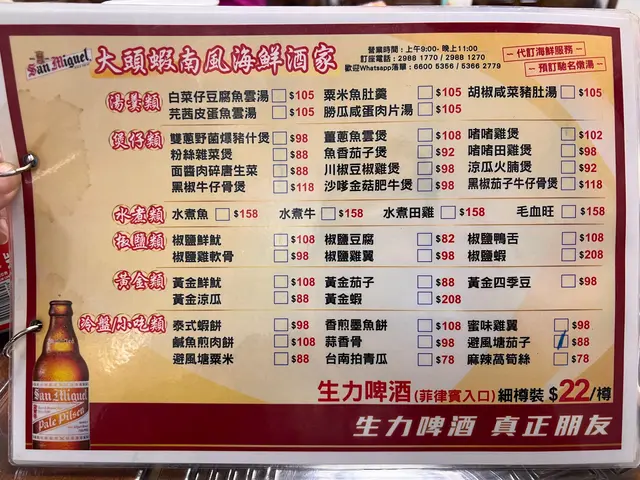 San Miguel 大頭蝦南風海鮮酒家
營業時間:上午9:00- 晚上11:00
訂座電話:2988 1770 / 2988 1270
歡迎Whatsapp落單:6600 5356 / 5366 2779
代訂海鮮服務
預訂馳名燉湯
湯羹類 白菜仔豆腐魚雲湯 $105 粟米魚肚羹 $105 胡椒咸菜豬肚湯 $105
芫茜皮蛋魚雲湯 $105 勝瓜咸蛋肉片湯 $105
煲仔類 雙蔥野菌爆豬什煲 $98 薑蔥魚雲煲 $108 啫啫雞煲 $102
粉絲雜菜煲 $88 魚香茄子煲 $92 啫啫田雞煲 $98
面醬肉碎唐生菜 $88 川椒豆根雞煲 $98 涼瓜火腩煲 $92
黑椒牛仔骨煲 $118 沙嗲金菇肥牛煲 $98 黑椒茄子牛仔骨煲 $118
水煮類 水煮魚 $158 水煮牛 $158 水煮田雞 $158 毛血旺 $158
椒鹽類 椒鹽鮮魷 $108 椒鹽豆腐 $82 椒鹽鴨舌 $108
椒鹽雞軟骨 $98 椒鹽雞翼 $98 椒鹽蝦 $208
黃金類 黃金鮮魷 $108 黃金茄子 $88 黃金四季豆 $98
黃金涼瓜 $88 黃金蝦 $208
冷盤/小吃類 泰式蝦餅 $98 香煎墨魚餅 $108 蜜味雞翼 $98
鹹魚煎肉餅 $108 蒜香骨 $98 避風塘茄子 $88
避風塘粟米 $88 台南拍青瓜 $78 麻辣萵筍絲 $78
San Miguel
Pale Pilsen
生力啤酒(菲律賓入口) 細樽裝 $22/樽
生力啤酒 真正朋友